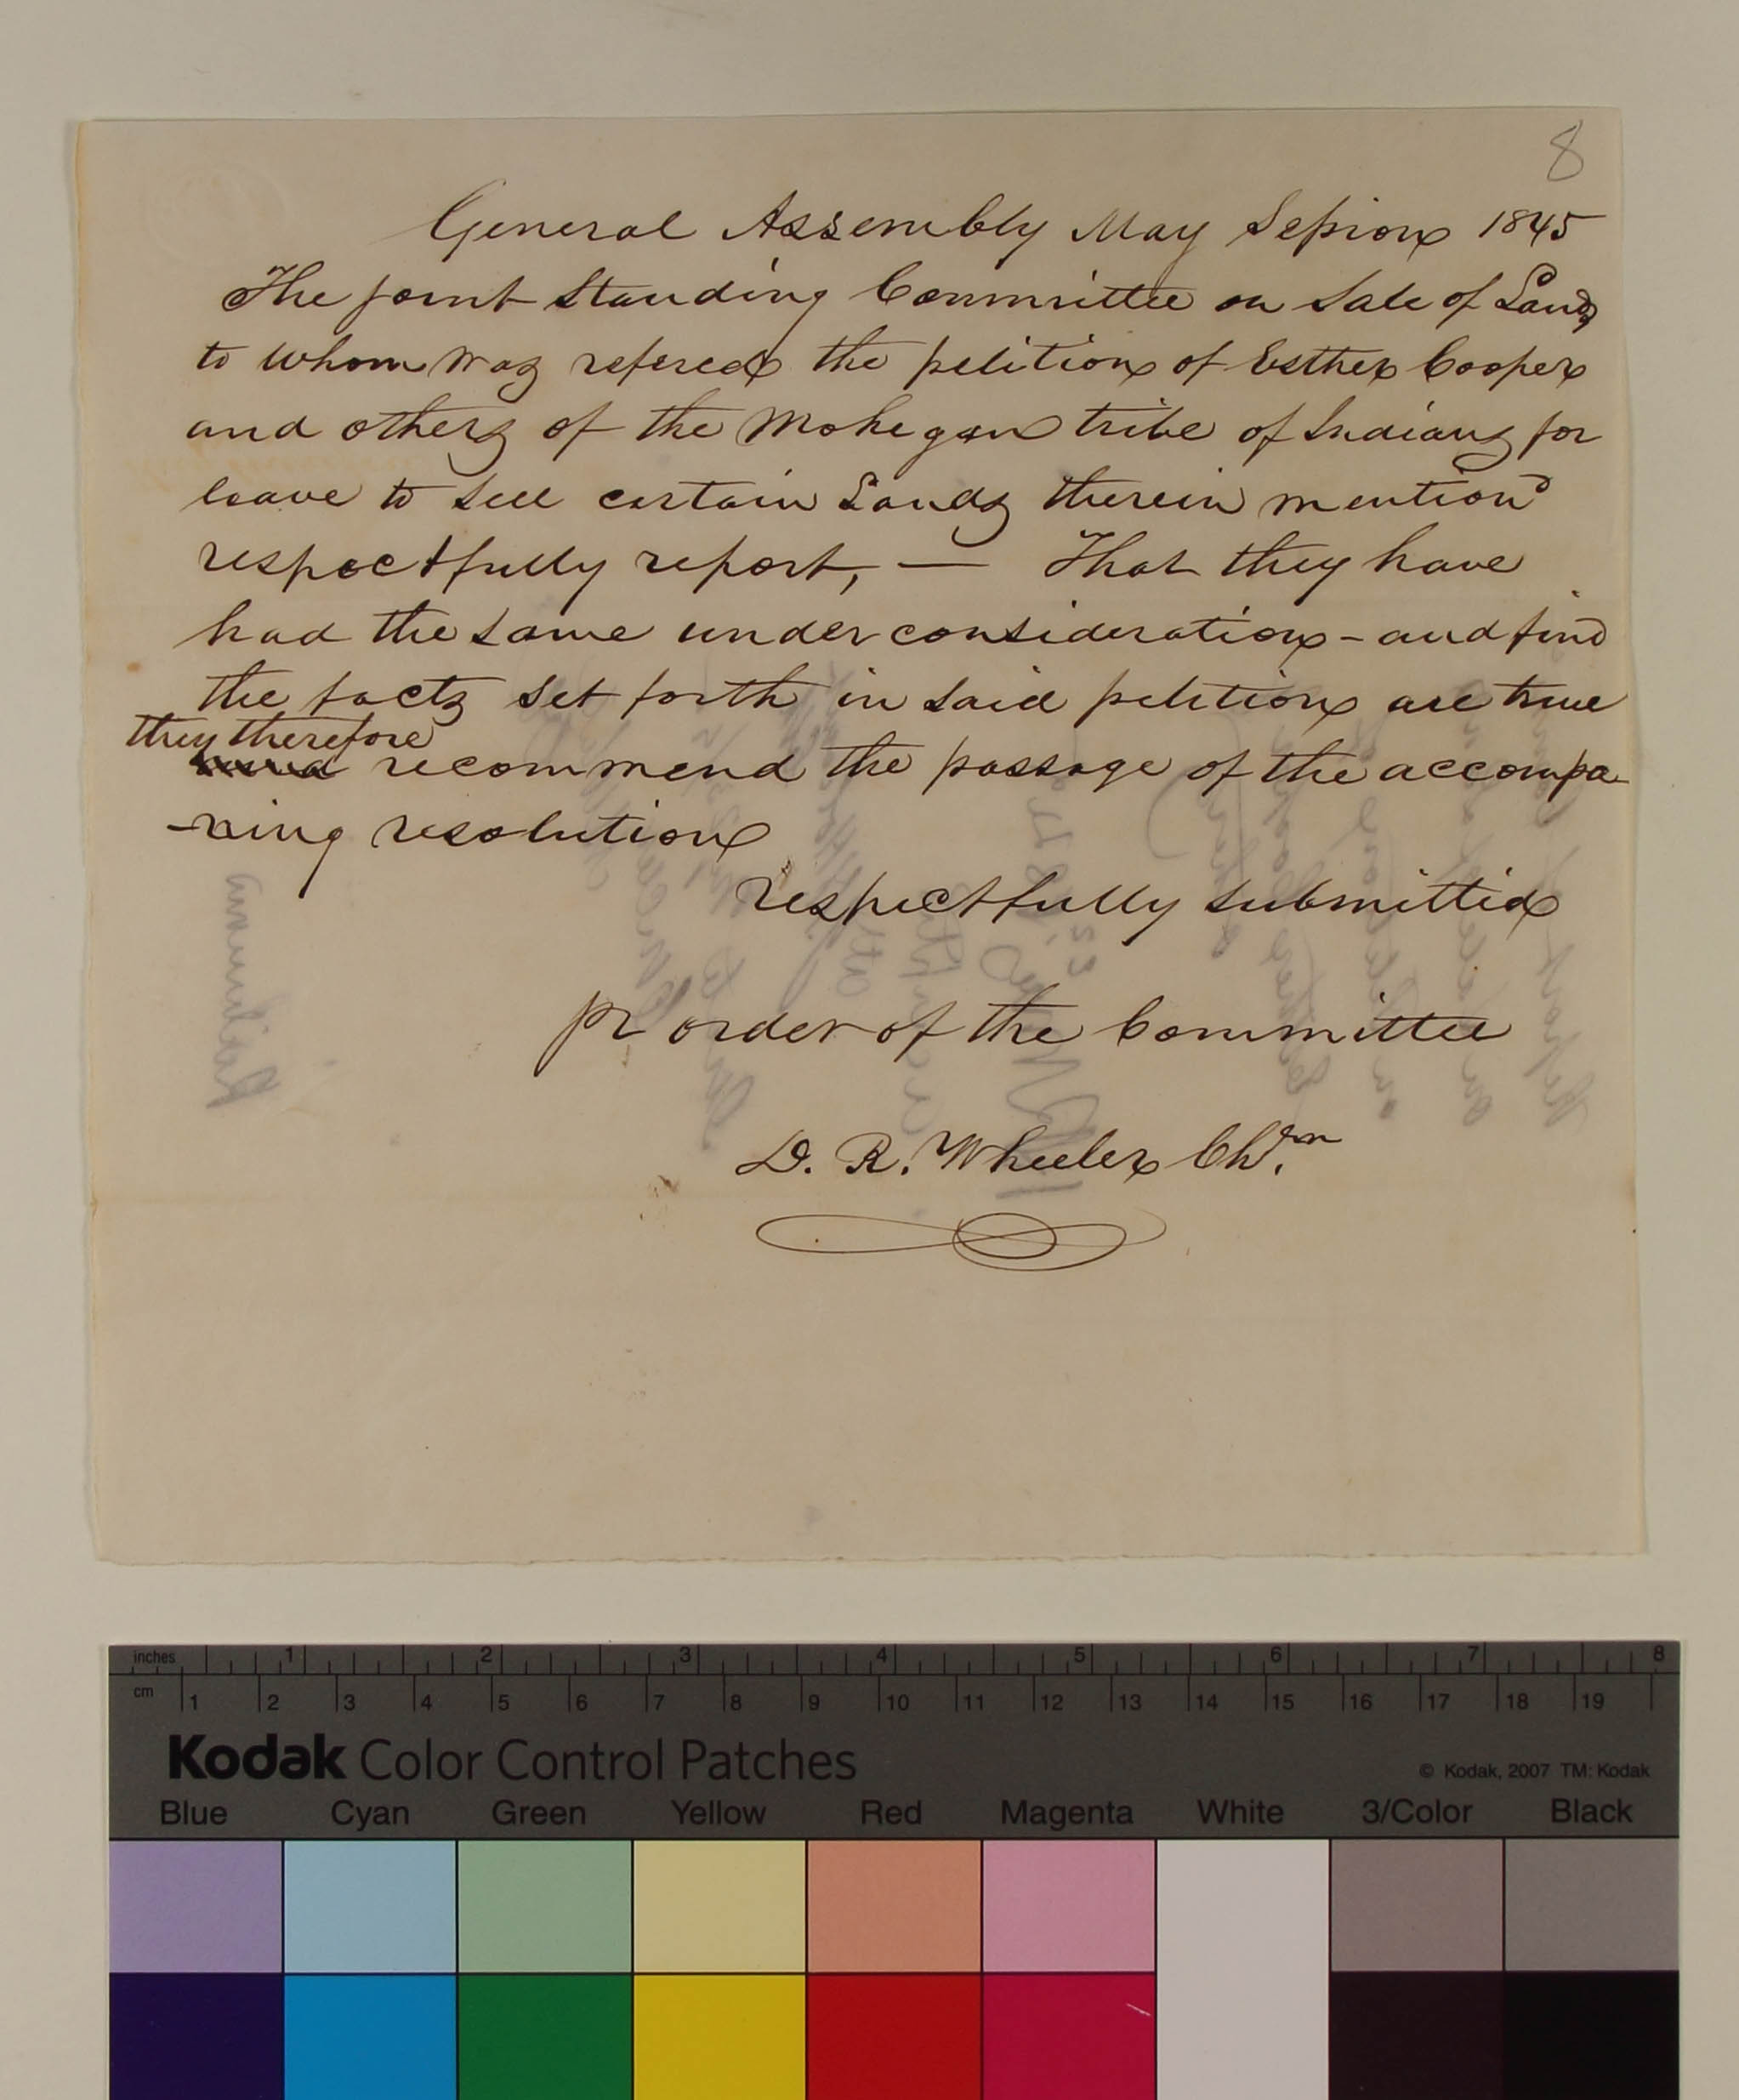 8
General Assembly May Session 1845
The joint Standing Committee on Sale of Lands
to whom was refered the petition of Esther Cooper
and others of the Mohegan tribe of Indians for
leave to sell certain Lands therein mentiond
respectfully report, — That they have
had the same under consideration - and find
the facts set forth in said petition are true
they therefore
and recommend the passage of the accompa
-ning resolution
respectfully submitted
pr order of the Committee
D. R. Wheeler Chrm.
inches 1 2 3 4 5 6 7 8
cm 1 2 3 4 5 6 7 8 9 10 11 12 13 14 15 16 17 18 19
Kodak Color Control Patches
© Kodak, 2007 TM: Kodak
Blue Cyan Green Yellow Red Magenta White 3/Color Black